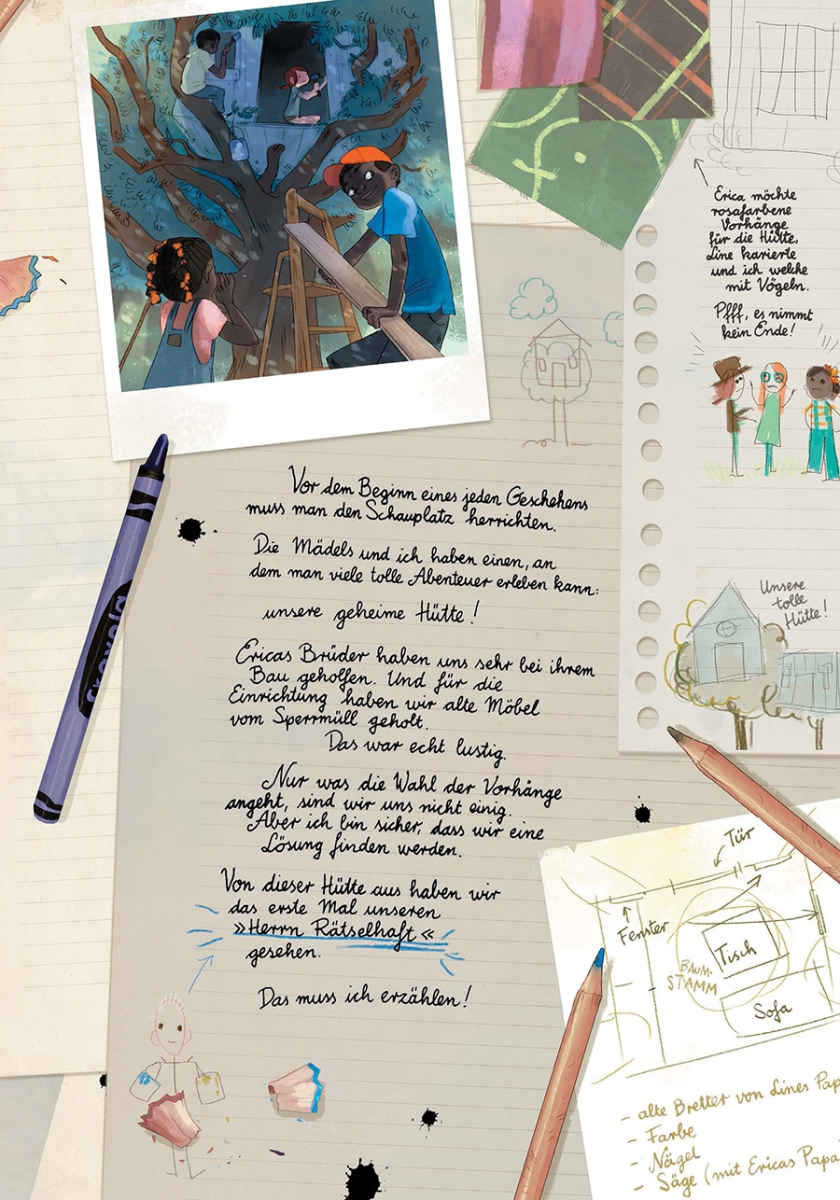 Erica möchte
rosafarbene
Vorhänge
für die Hütte,
Line karierte
und ich welche
mit Vögeln.
Pfff, es nimmt
kein Ende!
Vor dem Beginn eines jeden Geschehens
muss man den Schauplatz herrichten.
Die Mädels und ich haben einen, an
dem man viele tolle Abenteuer erleben kann:
unsere geheime Hütte!
Ericas Brüder haben uns sehr bei ihrem
Bau geholfen. Und für die
Einrichtung haben wir alte Möbel
vom Sperrmüll geholt.
Das war echt lustig.
Nur was die Wahl der Vorhänge
angeht, sind wir uns nicht einig.
Aber ich bin sicher, dass wir eine
Lösung finden werden.
Von dieser Hütte aus haben wir
das erste Mal unseren
»Herrn Rätselhaft«
gesehen.
Das muss ich erzählen!
Crayola
Unsere
tolle
Hütte!
Tür
Fenster
Tisch
BAUM-
STAMM
Sofa
- alte Bretter von Lines Pap
- Farbe
- Nägel
- Säge (mit Ericas Papa